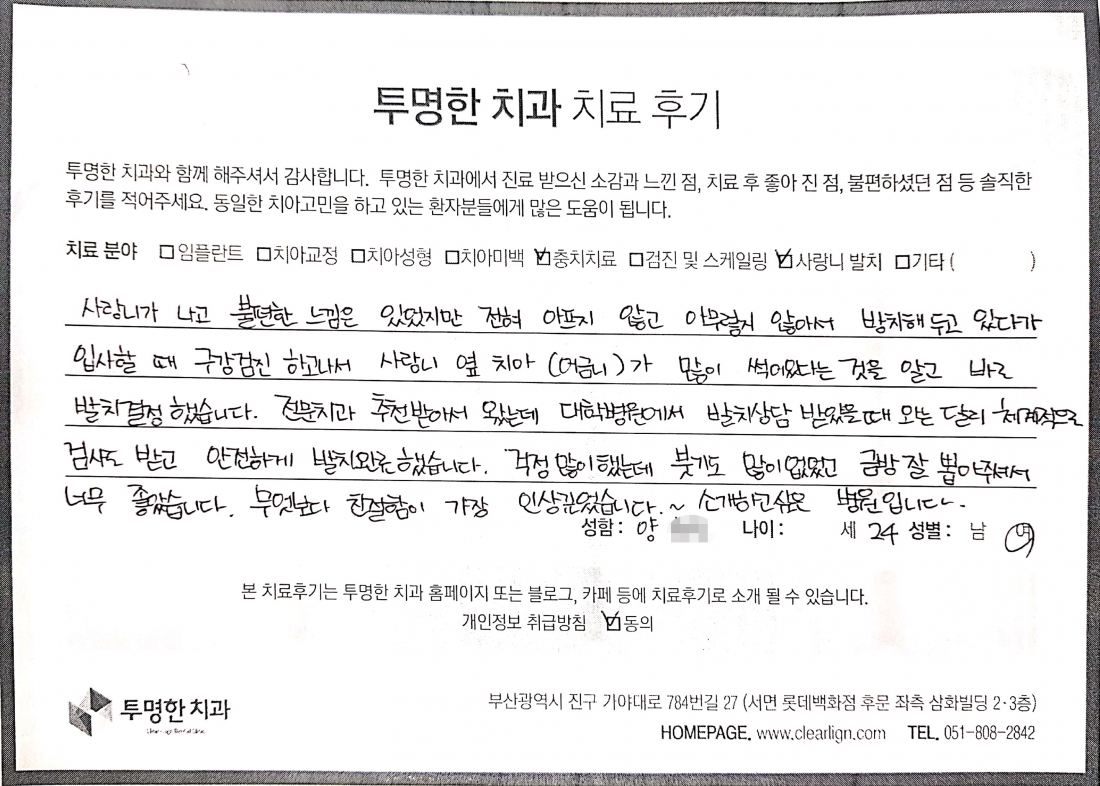 투명한 치과 치료 후기
투명한 치과와 함께 해주셔서 감사합니다. 투명한 치과에서 진료 받으신 소감과 느낀 점, 치료 후 좋아 진 점, 불편하셨던 점 등 솔직한
후기를 적어주세요. 동일한 치아고민을 하고 있는 환자분들에게 많은 도움이 됩니다.
치료 분야 □임플란트 □치아교정 □치아성형 □치아미백 ☑충치치료 □검진 및 스케일링 ☑사랑니 발치 □기타 ( )
사랑니가 나고 불편한 느낌은 있었지만 전혀 아프지 않고 아무렇지 않아서 방치해 두고 있다가
입사할 때 구강검진 하고나서 사랑니 옆 치아 (어금니)가 많이 썩어있다는 것을 알고 바로
발치결정 했습니다. 전문치과 추천받아서 왔는데 대학병원에서 발치상담 받았을때 오는 달리 체계적으로
검사도 받고 안전하게 발치완료했습니다. 걱정 많이했는데 붓기도 많이없었고 금방 잘 뽑아주셔서
너무 좋았습니다. 무엇보다 친절함이 가장 인상깊었습니다.~ 소개하고싶은 병원입니다~.
성함: 양 나이: 세 24 성별: 남 여
본 치료후기는 투명한 치과 홈페이지 또는 블로그, 카페 등에 치료후기로 소개 될 수 있습니다.
개인정보 취급방침 ☑동의
투명한 치과
부산광역시 진구 가야대로 784번길 27 (서면 롯데백화점 후문 좌측 삼화빌딩 2·3층)
HOMEPAGE. www.clearlign.com TEL. 051-808-2842